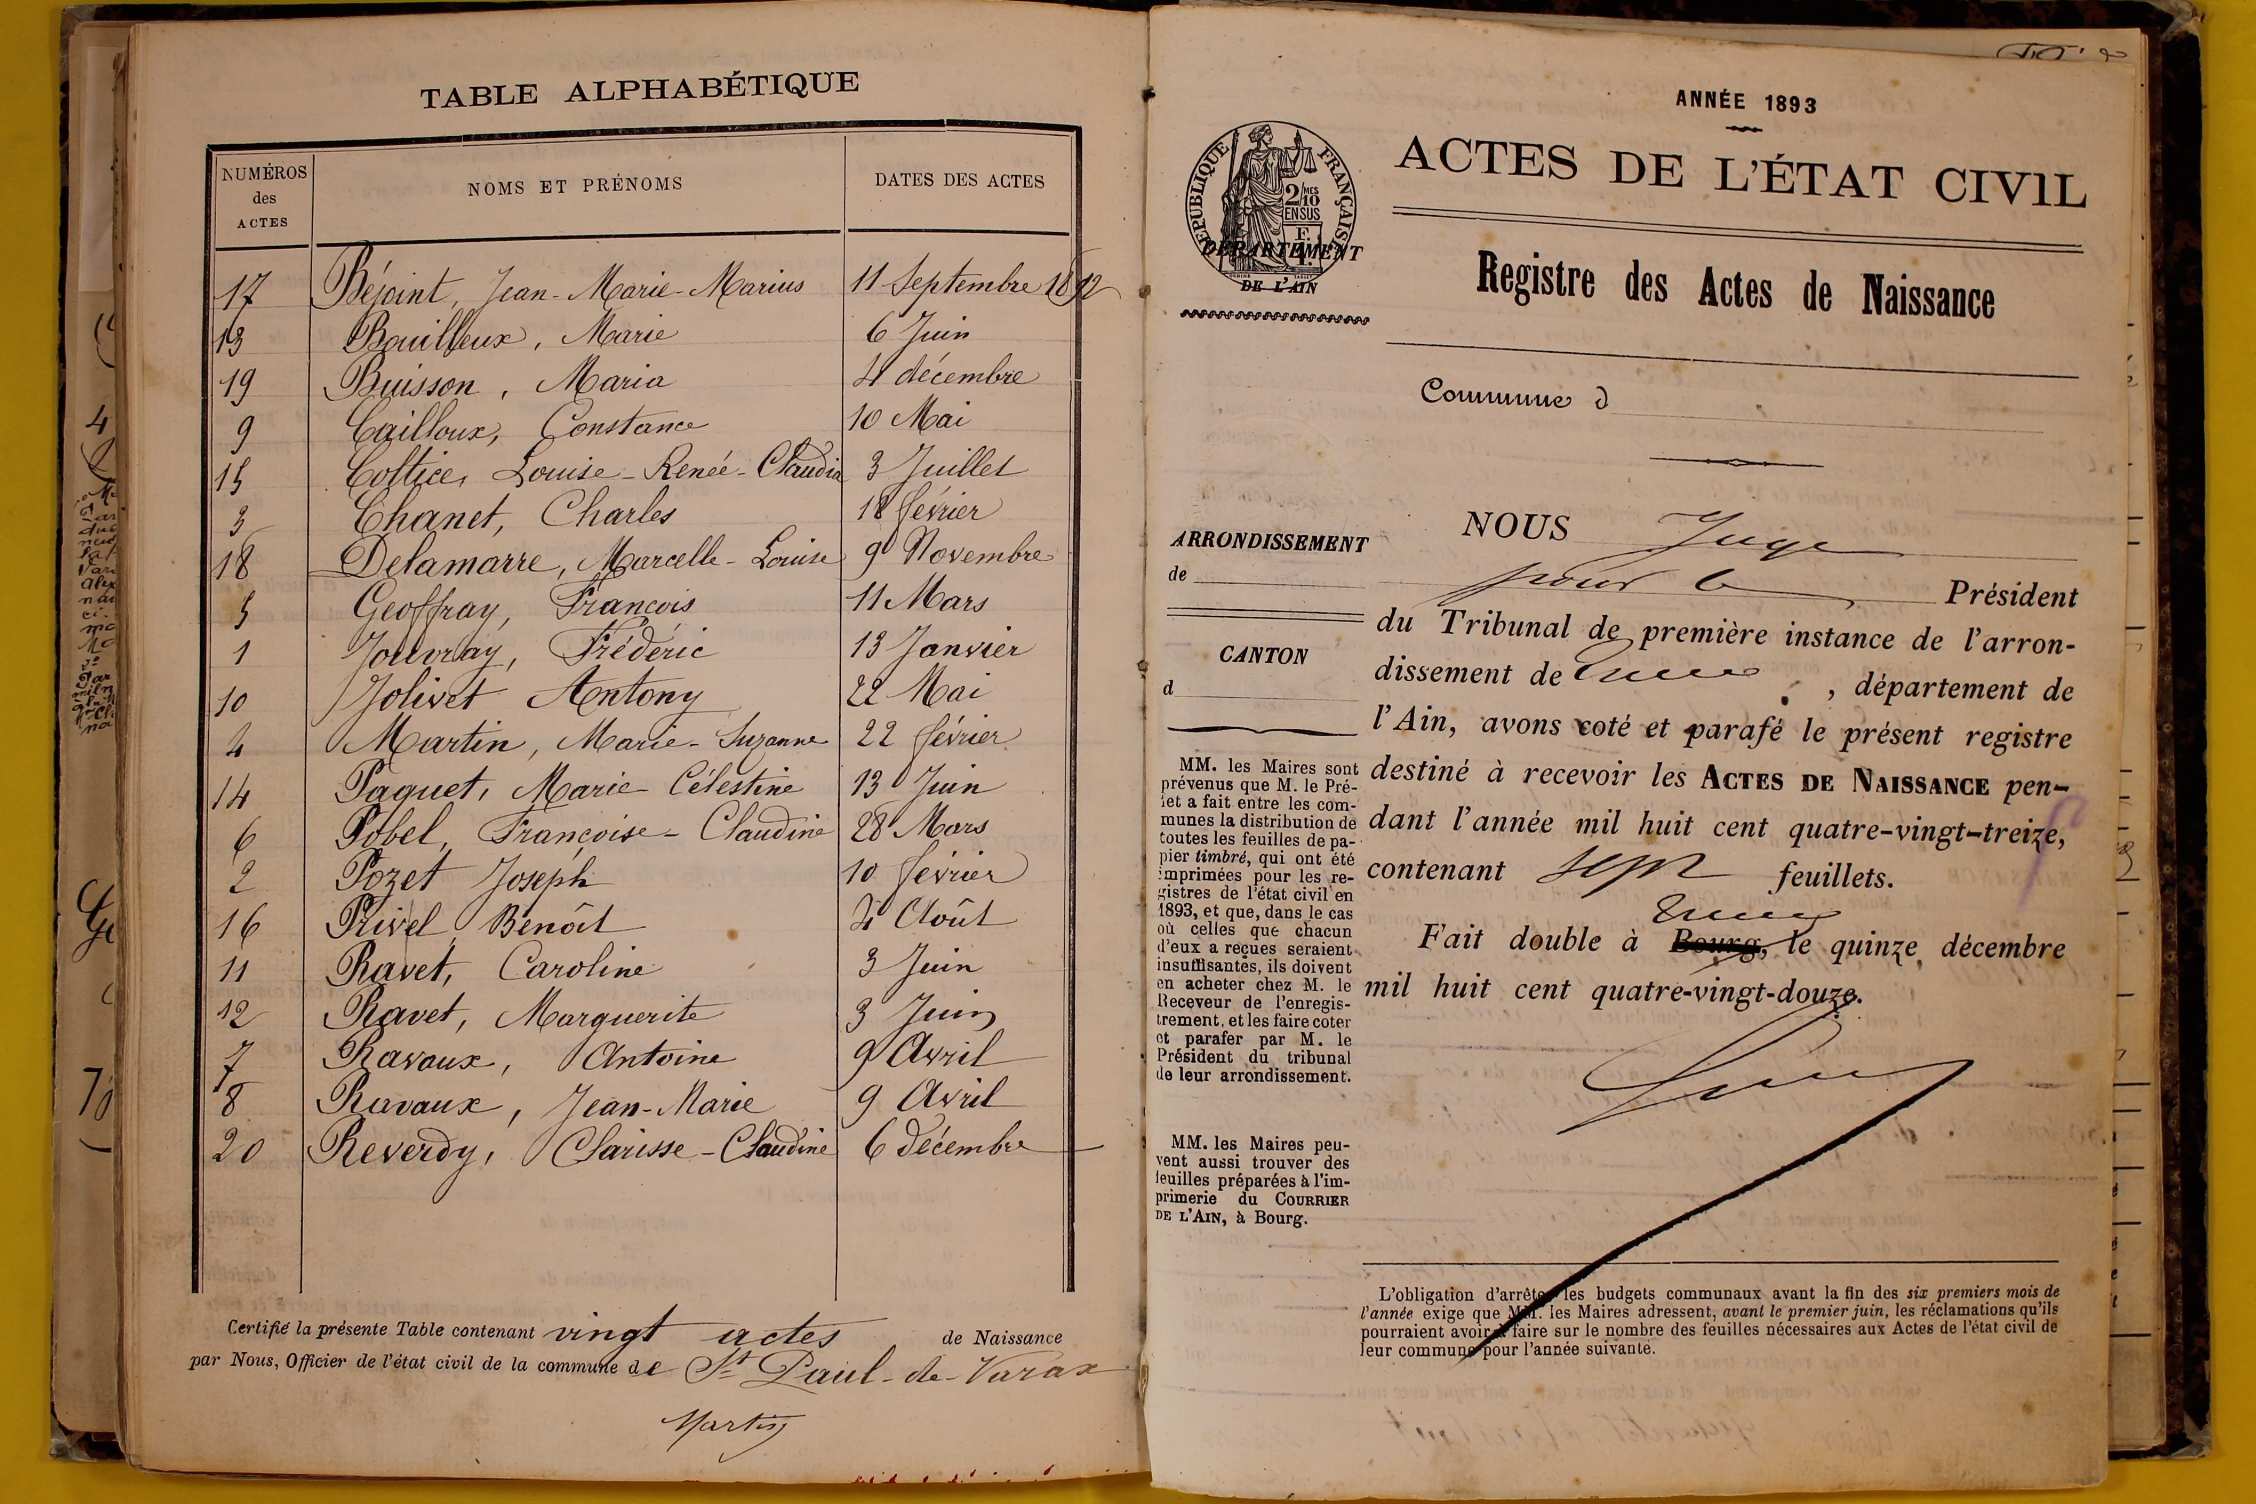 TABLE ALPHABÉTIQUE
NUMÉROS des ACTES
NOMS ET PRÉNOMS
DATES DES ACTES
17 Béjoint, Jean-Marie-Marius 11 Septembre 1892
13 Bouilloux, Marie 6 Juin
19 Buisson, Maria 4 décembre
9 Cailloux, Constance 10 Mai
15 Coltice, Louise-Renée-Claudia 3 Juillet
3 Chanet, Charles 18 février
18 Delamarre, Marcelle-Louise 9 Novembre
5 Geoffray, François 11 Mars
1 Jouvray, Frédéric 13 Janvier
10 Jolivet Antony 22 Mai
4 Martin, Marie-Suzanne 22 février
14 Paquet, Marie-Célestine 13 Juin
6 Pobel, Françoise-Claudine 28 Mars
2 Pozet Joseph 10 février
16 Privel Benoît 4 Août
11 Ravet, Caroline 3 Juin
12 Ravet, Marguerite 3 Juin
7 Ravaux, Antoine 9 Avril
8 Ravaux, Jean-Marie 9 Avril
20 Reverdy, Clarisse-Claudine 6 Décembre
Certifié la présente Table contenant vingt actes de Naissance
par Nous, Officier de l'état civil de la commune de St Paul-de-Varax
Martin
ANNÉE 1893
ACTES DE L'ÉTAT CIVIL
RÉPUBLIQUE FRANÇAISE
2/10 MES
EN SUS
DÉPARTEMENT
DE L'AIN
Registre des Actes de Naissance
Commune d
ARRONDISSEMENT
de
CANTON
d
MM. les Maires sont
prévenus que M. le Pré-
fet a fait entre les com-
munes la distribution de
toutes les feuilles de pa-
pier timbré, qui ont été
imprimées pour les re-
gistres de l'état civil en
1893, et que, dans le cas
où celles que chacun
d'eux a reçues seraient
insuffisantes, ils doivent
en acheter chez M. le
Receveur de l'enregis-
trement, et les faire coter
et parafer par M. le
Président du tribunal
de leur arrondissement.
MM. les Maires peu-
vent aussi trouver des
feuilles préparées à l'im-
primerie du COURRIER
DE L'AIN, à Bourg.
NOUS Juge
pour le Président
du Tribunal de première instance de l'arron-
dissement de , département de
l'Ain, avons coté et parafé le présent registre
destiné à recevoir les ACTES DE NAISSANCE pen-
dant l'année mil huit cent quatre-vingt-treize,
contenant sept feuillets.
Fait double à Bourg, le quinze décembre
mil huit cent quatre-vingt-douze.
L'obligation d'arrêter les budgets communaux avant la fin des six premiers mois de
l'année exige que MM. les Maires adressent, avant le premier juin, les réclamations qu'ils
pourraient avoir à faire sur le nombre des feuilles nécessaires aux Actes de l'état civil de
leur commune pour l'année suivante.